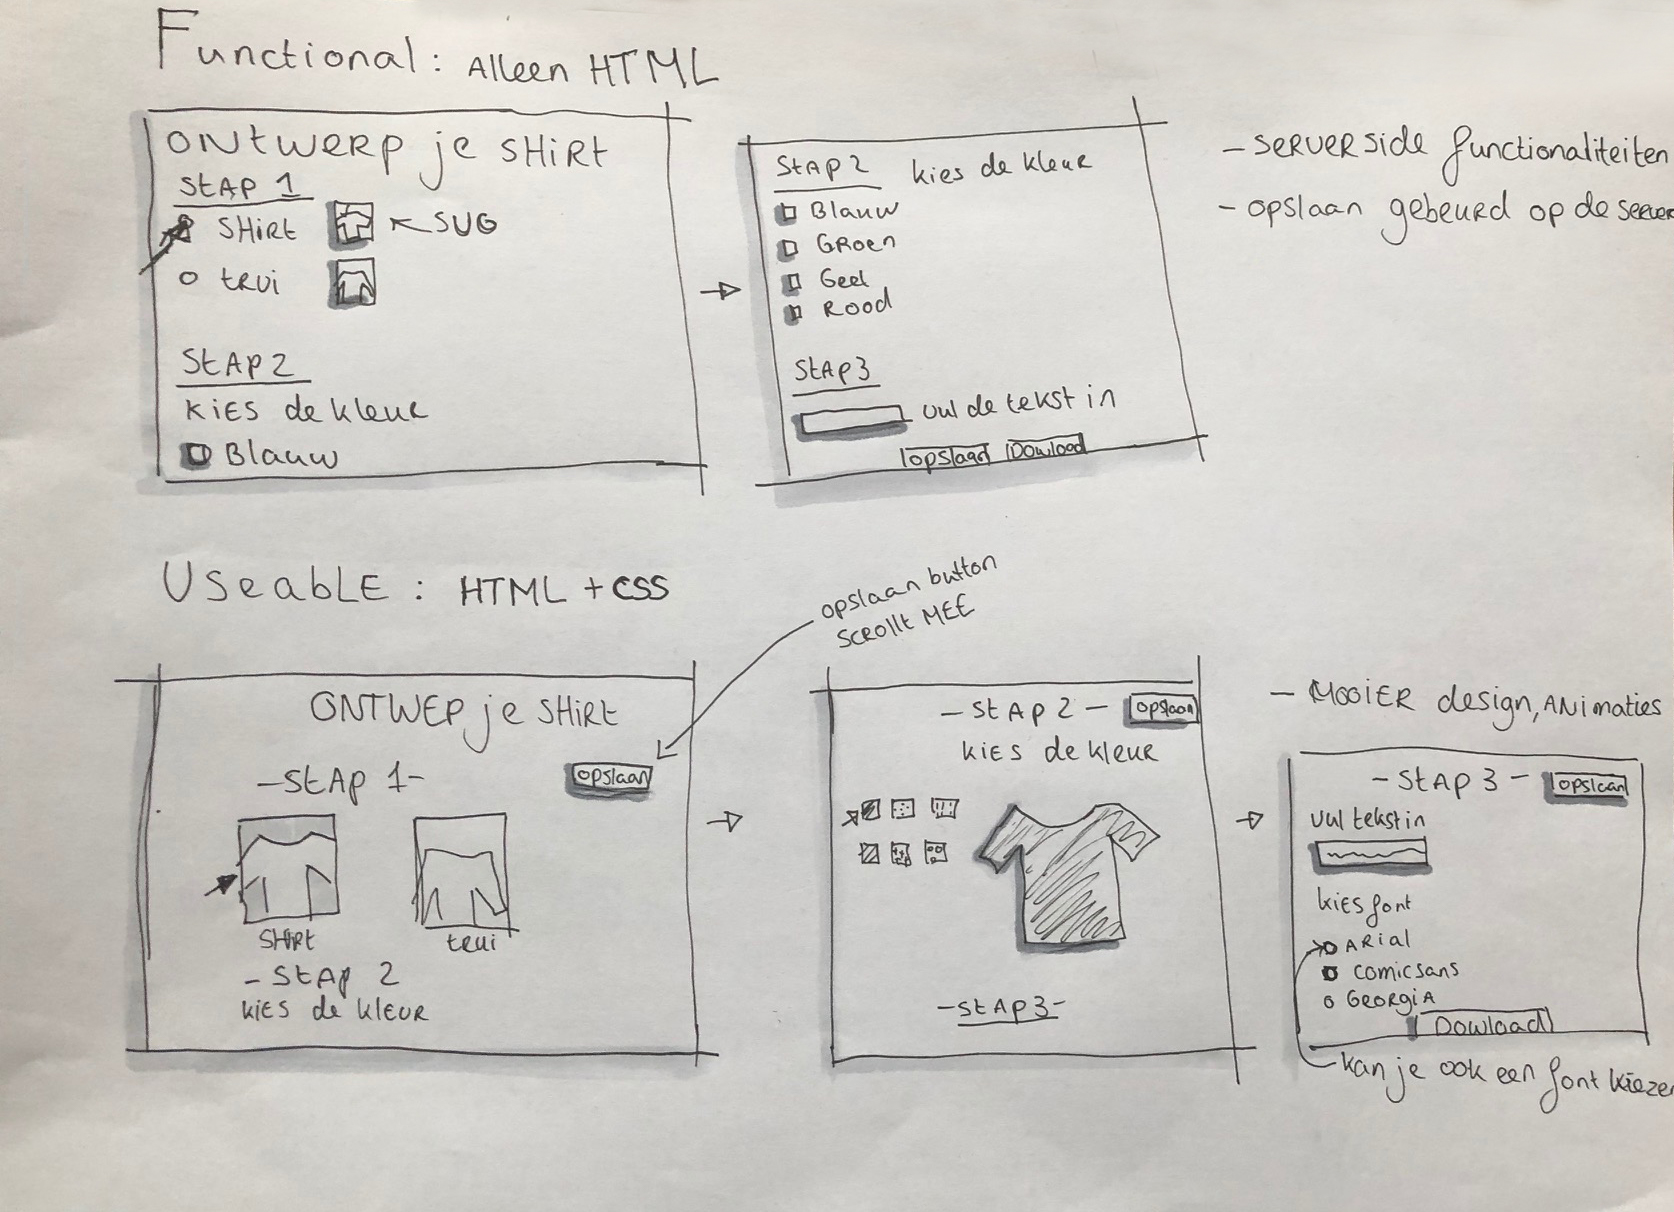 Functional: Alleen HTML
ONTWERP je SHIRT
STAP 1
SHIRT
SVG
TRUI
STAP 2
KIES de kleur
Blauw
STAP 2 kies de kleur
Blauw
GROEN
Geel
ROOD
STAP 3
vul de tekst in
opslaan Dowload
- SERVER side functionaliteiten
- opslaan gebeurd op de server
UseabLE: HTML + CSS
opslaan button
SCROllt MEE
ONTWEP je SHIRT
- STAP 1 -
opslaan
SHIRT
trui
- STAP 2
KIES de KLEUR
- STAP 2 - opslaan
KIES de kleur
- STAP 3 -
- MOOIER design, ANimaties
- STAP 3 - opslaan
vul tekst in
kies font
ARial
comicsans
GEORGIA
Dowload
kan je ook een font kiezen